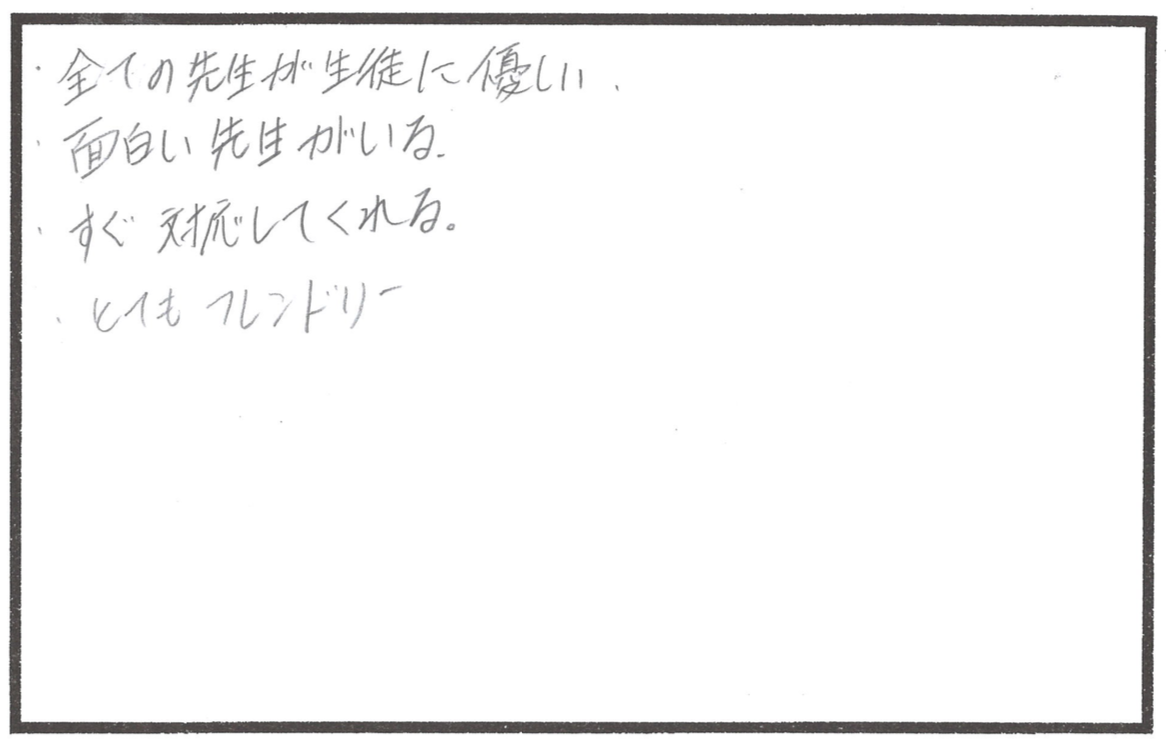 ・全ての先生が生徒に優しい.
・面白い先生がいる.
・すぐ対応してくれる。
・とてもフレンドリー